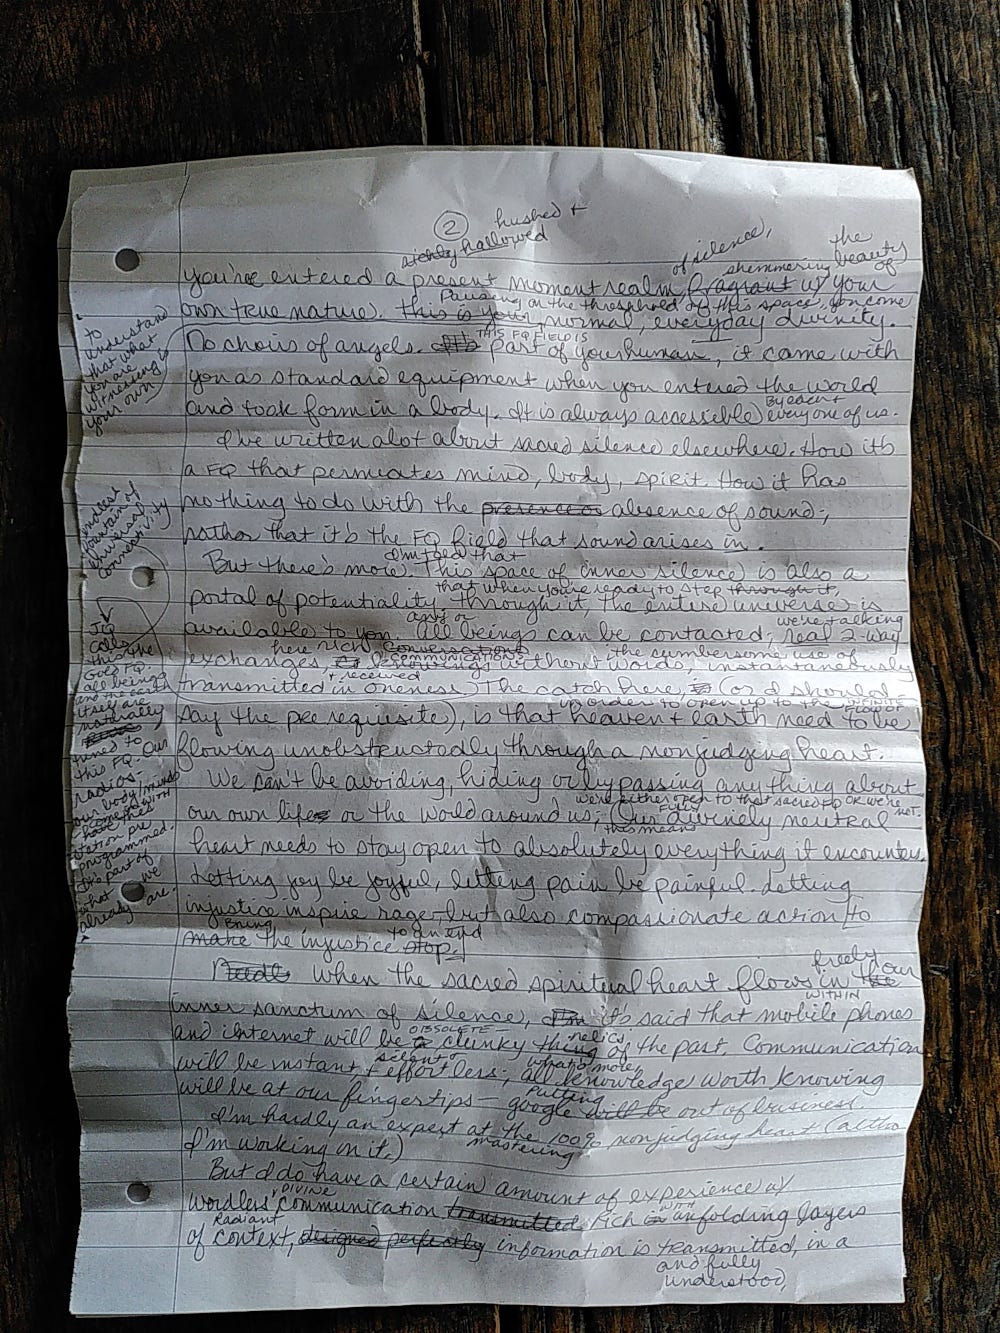 ② hushed +
richly hallowed
of silence,
the
shimmering beauty
you've entered a present moment realm fragrant w/ of your
Pausing on the threshold of this space, you come
own true nature. This is your normal, everyday divinity.
THIS FQ FIELD IS
No choirs of angels. part of your human, it came with
you as standard equipment when you entered the world
By each +
and took form in a body. It is always accessible every one of us.
to
understand
that what
you are
witnessing is
your own
I've written alot about sacred silence elsewhere. How it's
a FQ that permeates mind, body, spirit. How it has
nothing to do with the presence or absence of sound;
rather that it's the FQ field that sound arises in.
endless
fountain of
universal
connectivity
I'm told that
But there's more. This space of inner silence is also a
that when you're ready to step through it,
portal of potentiality, through it, the entire universe is
any or we're talking
available to you. All beings can be contacted; real 2-way
here rich conversations the cumbersome use of
COMMUNICATIONS
exchanges without words, instantaneously
+ received
transmitted in oneness. The catch here, is (or I should
in order to open up to the INFINITE FLOW OF
say the prerequisite), is that heaven + earth need to be
flowing unobstructedly through a nonjudging heart.
JQ
calls
this the
God FQ.
all beings
and the earth
itself are
naturally
tuned to
this FQ. Our
radios-
our body/minds
come WITH
have this
station pre
programmed.
It's part of
what we
already are.
We can't be avoiding, hiding or bypassing anything about
we're either open to that sacred FQ OR we're not.
our own lifes or the world around us; Our FULLY divinely neutral
this means
heart needs to stay open to absolutely everything it encounters.
Letting joy be joyful, letting pain be painful. Letting
injustice inspire rage—but also compassionate action to
Bring to an end
make the injustice stop.
freely
when the sacred spiritual heart flows in the our
WITHIN
inner sanctum of silence, I'm it's said that mobile phones
OBSOLETE— relics
and internet will be a clunky thing of the past. Communication
silent what's more,
will be instant + effortless; all knowledge worth knowing
Putting
will be at our fingertips— google will be out of business.
I'm hardly an expert at the 100% nonjudging heart (altho
mastering
I'm working on it.)
But I do have a certain amount of experience w/
+ DIVINE
wordless communication transmitted. Rich in WITH unfolding layers
Radiant
of context, designed perfectly information is transmitted, in a
and fully
understood,